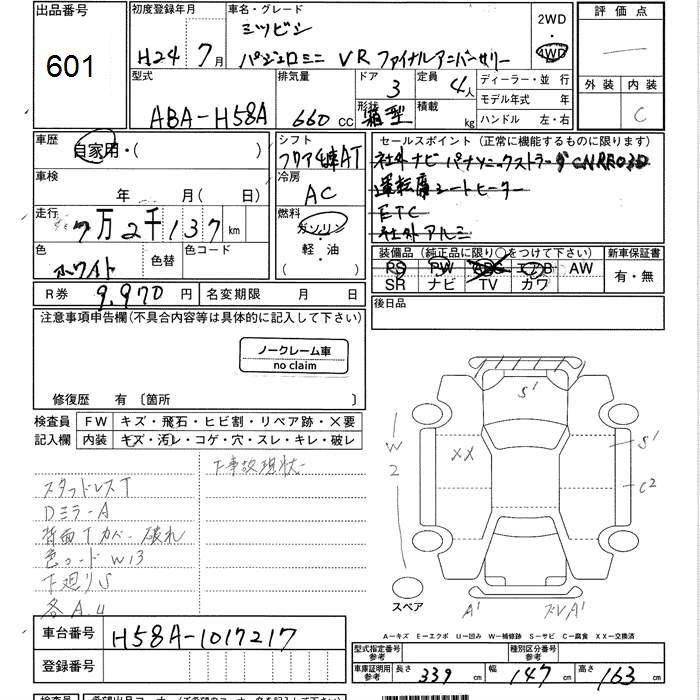 出品番号 初度登録年月 車名・グレード 2WD 評価点
601 H24年7月 ミツビシ パジェロミニ VR ファイナルアニバーサリー 4WD
型式 排気量 ドア 3 定員 4人 ディーラー・並行 外装 内装
ABA-H58A 660cc 形状 箱型 積載 kg モデル年式 年 ハンドル 左・右 C
車歴 自家用・( ) シフト フロア4速AT セールスポイント (正常に機能するものに限ります)
社外ナビ パナソニックストラーダ
車検 年 月(日) 冷房 AC 運転席シートヒーター
ETC
走行 7万2千137km 燃料 ガソリン・軽油・( ) 社外アルミ
色 ホワイト 色替 色コード 装備品 (純正品に限り○をつけて下さい) 新車保証書
PS PW エアB AW 有・無
SR ナビ TV カワ
R券 9,970円 名変期限 月 日 後日品
注意事項申告欄(不具合内容等は具体的に記入して下さい)
ノークレーム車
no claim
修復歴 有 〔箇所 〕
検査員 FW キズ・飛石・ヒビ割・リペア跡・×要
記入欄 内装 キズ・汚れ・コゲ・穴・スレ・キレ・破レ
下事故現状
スタッドレスT
Dミラ-A
背面Tカバー破れ
色コードW13
下廻りS
各A.U
S'
W2
XX
S'
C2
スペア
A'
ズレA'
A-キズ E-エクボ U-凹み W-補修跡 S-サビ C-腐食 XX-交換済
車台番号 H58A-1017217
登録番号
型式指定番号 参考 種類区分番号 参考
車庫証明用 参考 長さ 339 cm 幅 147 cm 高さ 163 cm